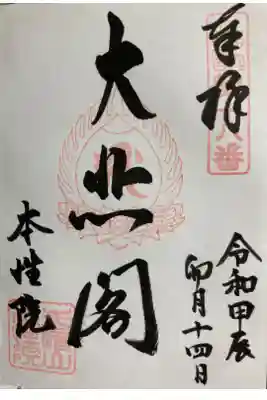 奉拝
八番
令和甲辰
卯月十四日
大悲閣
本性院